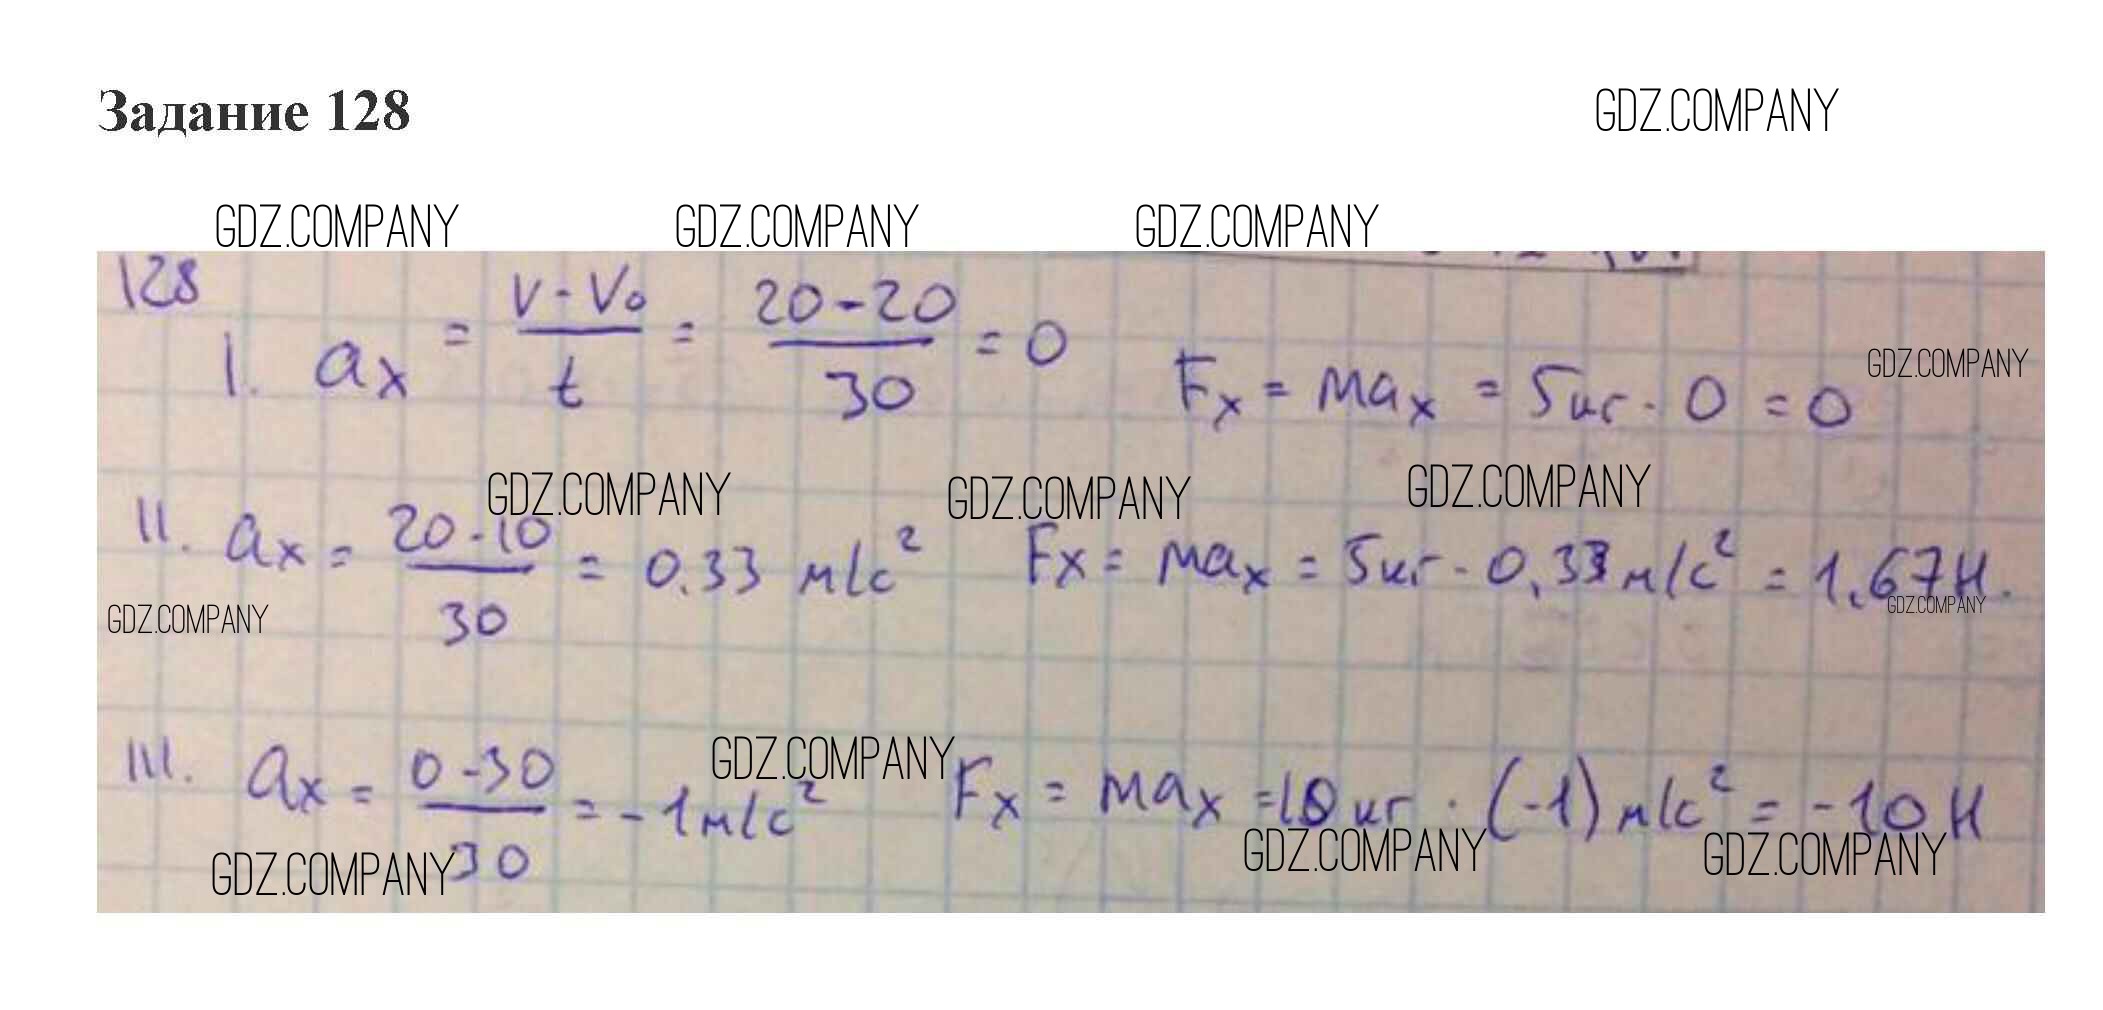 Задание 128
GDZ.COMPANY
GDZ.COMPANY GDZ.COMPANY GDZ.COMPANY
128
I. aₓ = (v - v₀)/t = (20 - 20)/30 = 0 Fₓ = maₓ = 5кг · 0 = 0
GDZ.COMPANY
GDZ.COMPANY GDZ.COMPANY GDZ.COMPANY
II. aₓ = (20 - 10)/30 = 0.33 м/с² Fₓ = maₓ = 5кг · 0,33 м/с² = 1,67 Н.
GDZ.COMPANY GDZ.COMPANY
GDZ.COMPANY
III. aₓ = (0 - 30)/30 = -1 м/с² Fₓ = maₓ = 10 кг · (-1) м/с² = -10 Н
GDZ.COMPANY GDZ.COMPANY GDZ.COMPANY